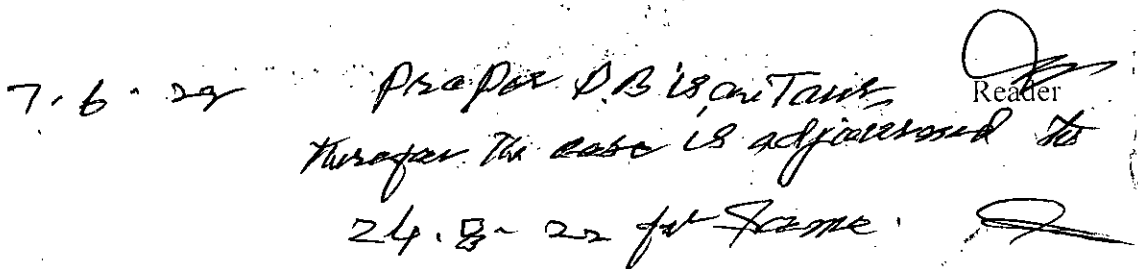 7.6.22 Proper D.B is on Tour
Reader
therefor the case is adjourned to
24.8-22 for Same.